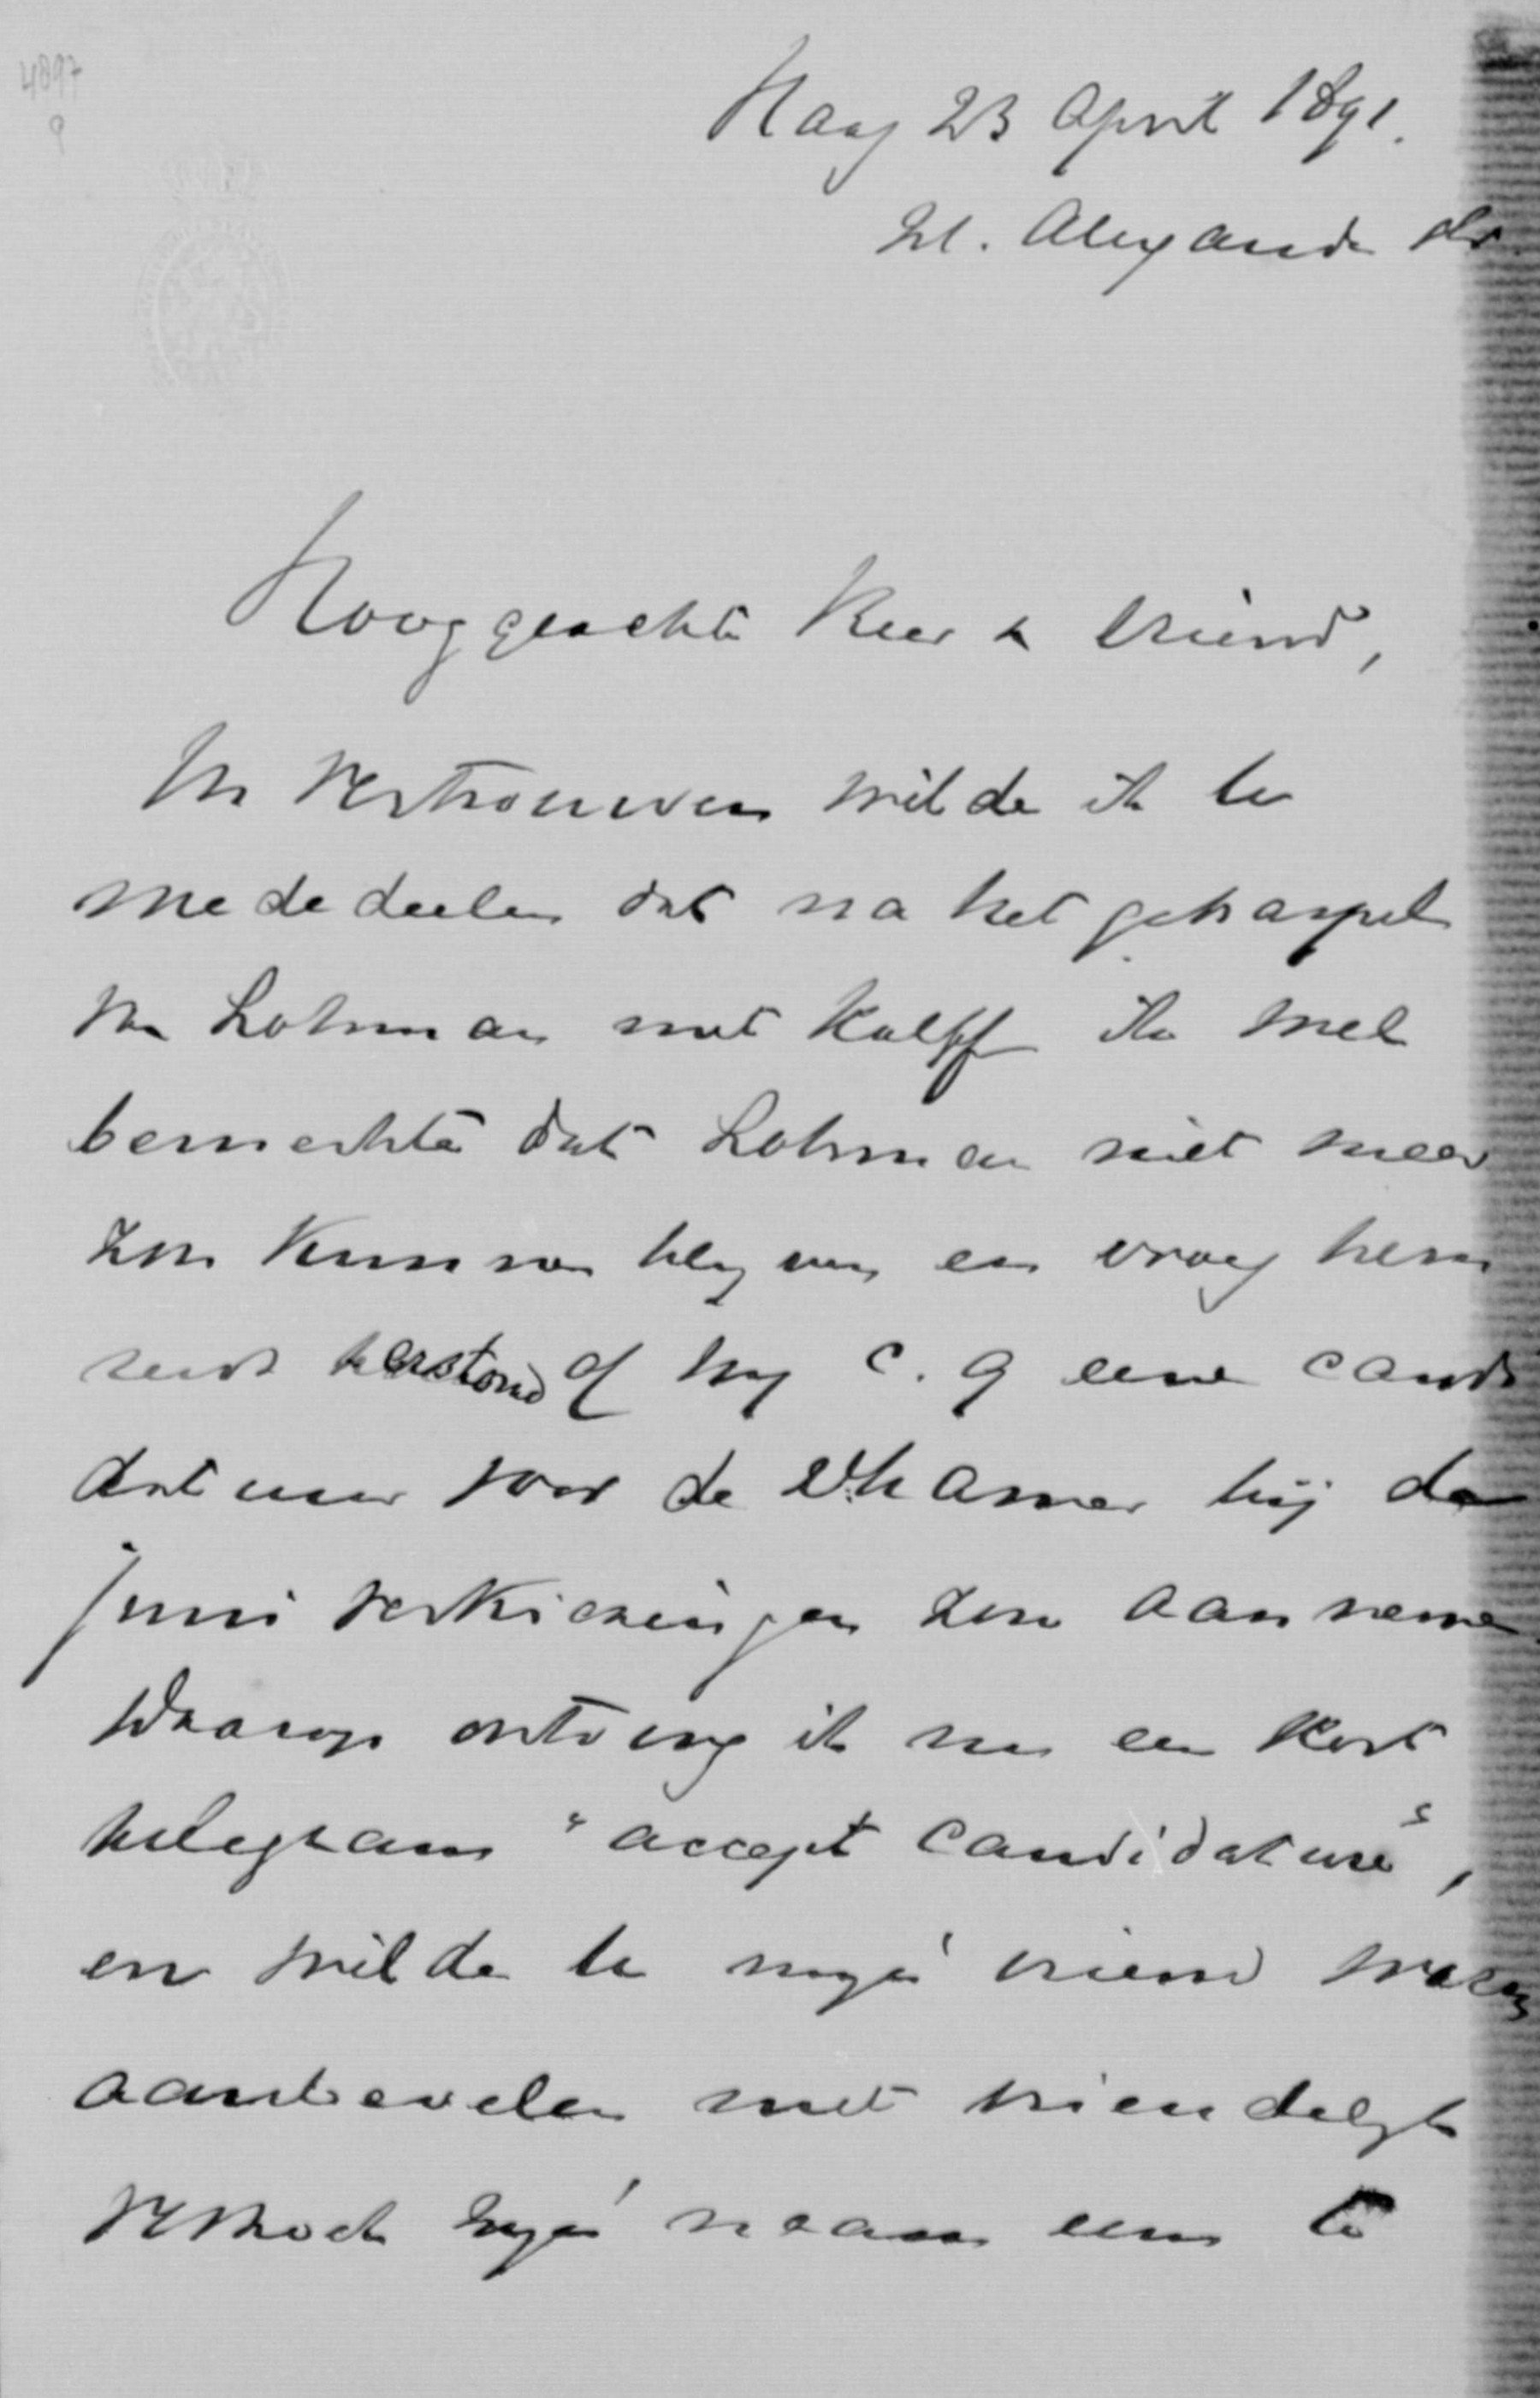 4897
9
Haag 23 April 1891.
21. Alexander str
Hooggeachte Heer & Vriend,
In vertrouwen wilde ik U
mededeelen dat na het gehaspel
van Lohman met Kalff ik wel
bemerkte dat Lohman niet meer
zou kunnen blijven en vroeg hem
of hij c. q eene candi
datuur voor de 2e kamer bij de
juni verkiezingen zou aannemen
Waarop ontving ik nu een kort
telegram "accept candidature",
en wilde U mijn vriend
aanbevelen met vriendelijk
verzoek zijn naam eens te